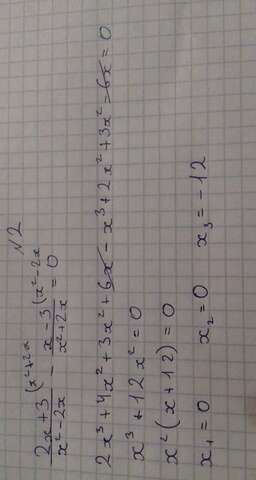 №2
(2x+3)/(x²-2x) (x²+2x - (x-3)/(x²+2x) (x²-2x = 0
2x³+4x²+3x²+6x-x³+2x²+3x²-6x=0
x³+12x²=0
x²(x+12)=0
x₁=0 x₂=0 x₃=-12